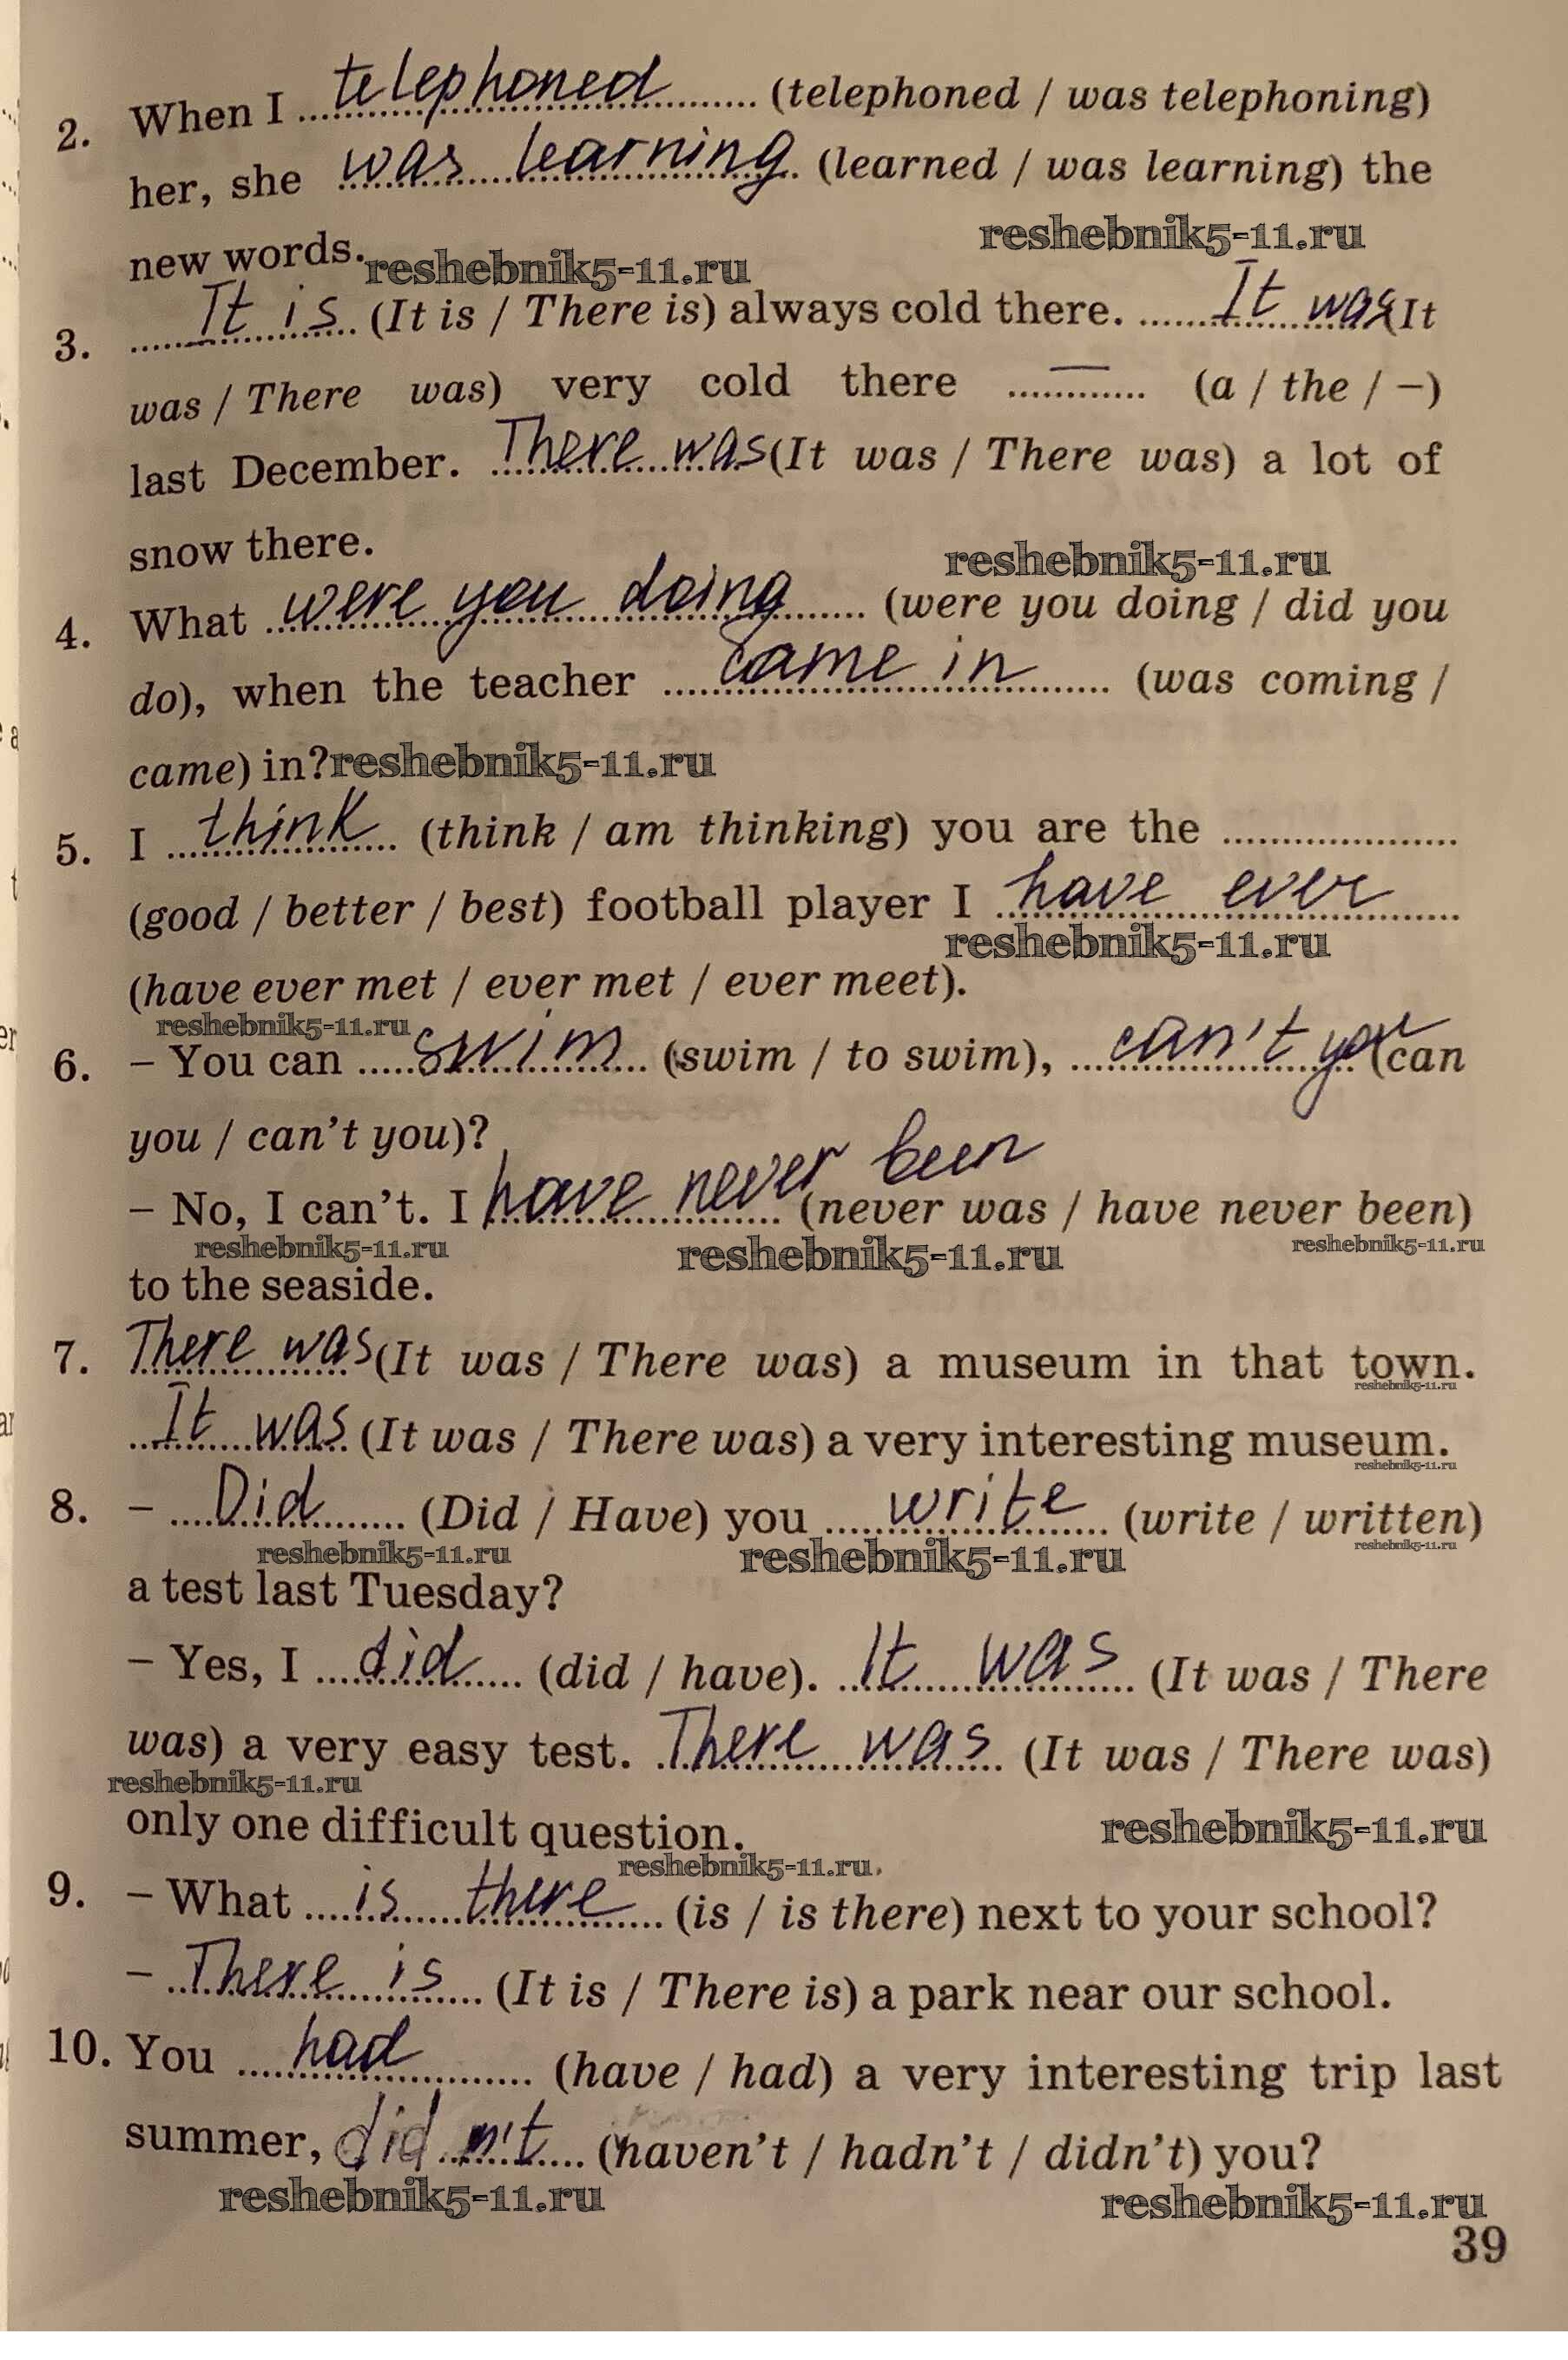 2. When I telephoned (telephoned / was telephoning)
her, she was learning (learned / was learning) the
reshebnik5-11.ru
new words. reshebnik5-11.ru
3. It is (It is / There is) always cold there. It was (It
was / There was) very cold there — (a / the / –)
last December. There was (It was / There was) a lot of
snow there.
reshebnik5-11.ru
4. What were you doing (were you doing / did you
do), when the teacher came in (was coming /
came) in? reshebnik5-11.ru
5. I think (think / am thinking) you are the ....................
(good / better / best) football player I have ever
reshebnik5-11.ru
(have ever met / ever met / ever meet).
reshebnik5-11.ru
6. – You can swim (swim / to swim), can't you (can
you / can't you)?
– No, I can't. I have never been (never was / have never been)
reshebnik5-11.ru reshebnik5-11.ru reshebnik5-11.ru
to the seaside.
7. There was (It was / There was) a museum in that town.
reshebnik5-11.ru
It was (It was / There was) a very interesting museum.
reshebnik5-11.ru
8. – Did (Did / Have) you write (write / written)
reshebnik5-11.ru reshebnik5-11.ru reshebnik5-11.ru
a test last Tuesday?
– Yes, I did (did / have). It was (It was / There
was) a very easy test. There was (It was / There was)
reshebnik5-11.ru
only one difficult question. reshebnik5-11.ru
reshebnik5-11.ru
9. – What is there (is / is there) next to your school?
– There is (It is / There is) a park near our school.
10. You had (have / had) a very interesting trip last
summer, didn't (haven't / hadn't / didn't) you?
reshebnik5-11.ru reshebnik5-11.ru
39